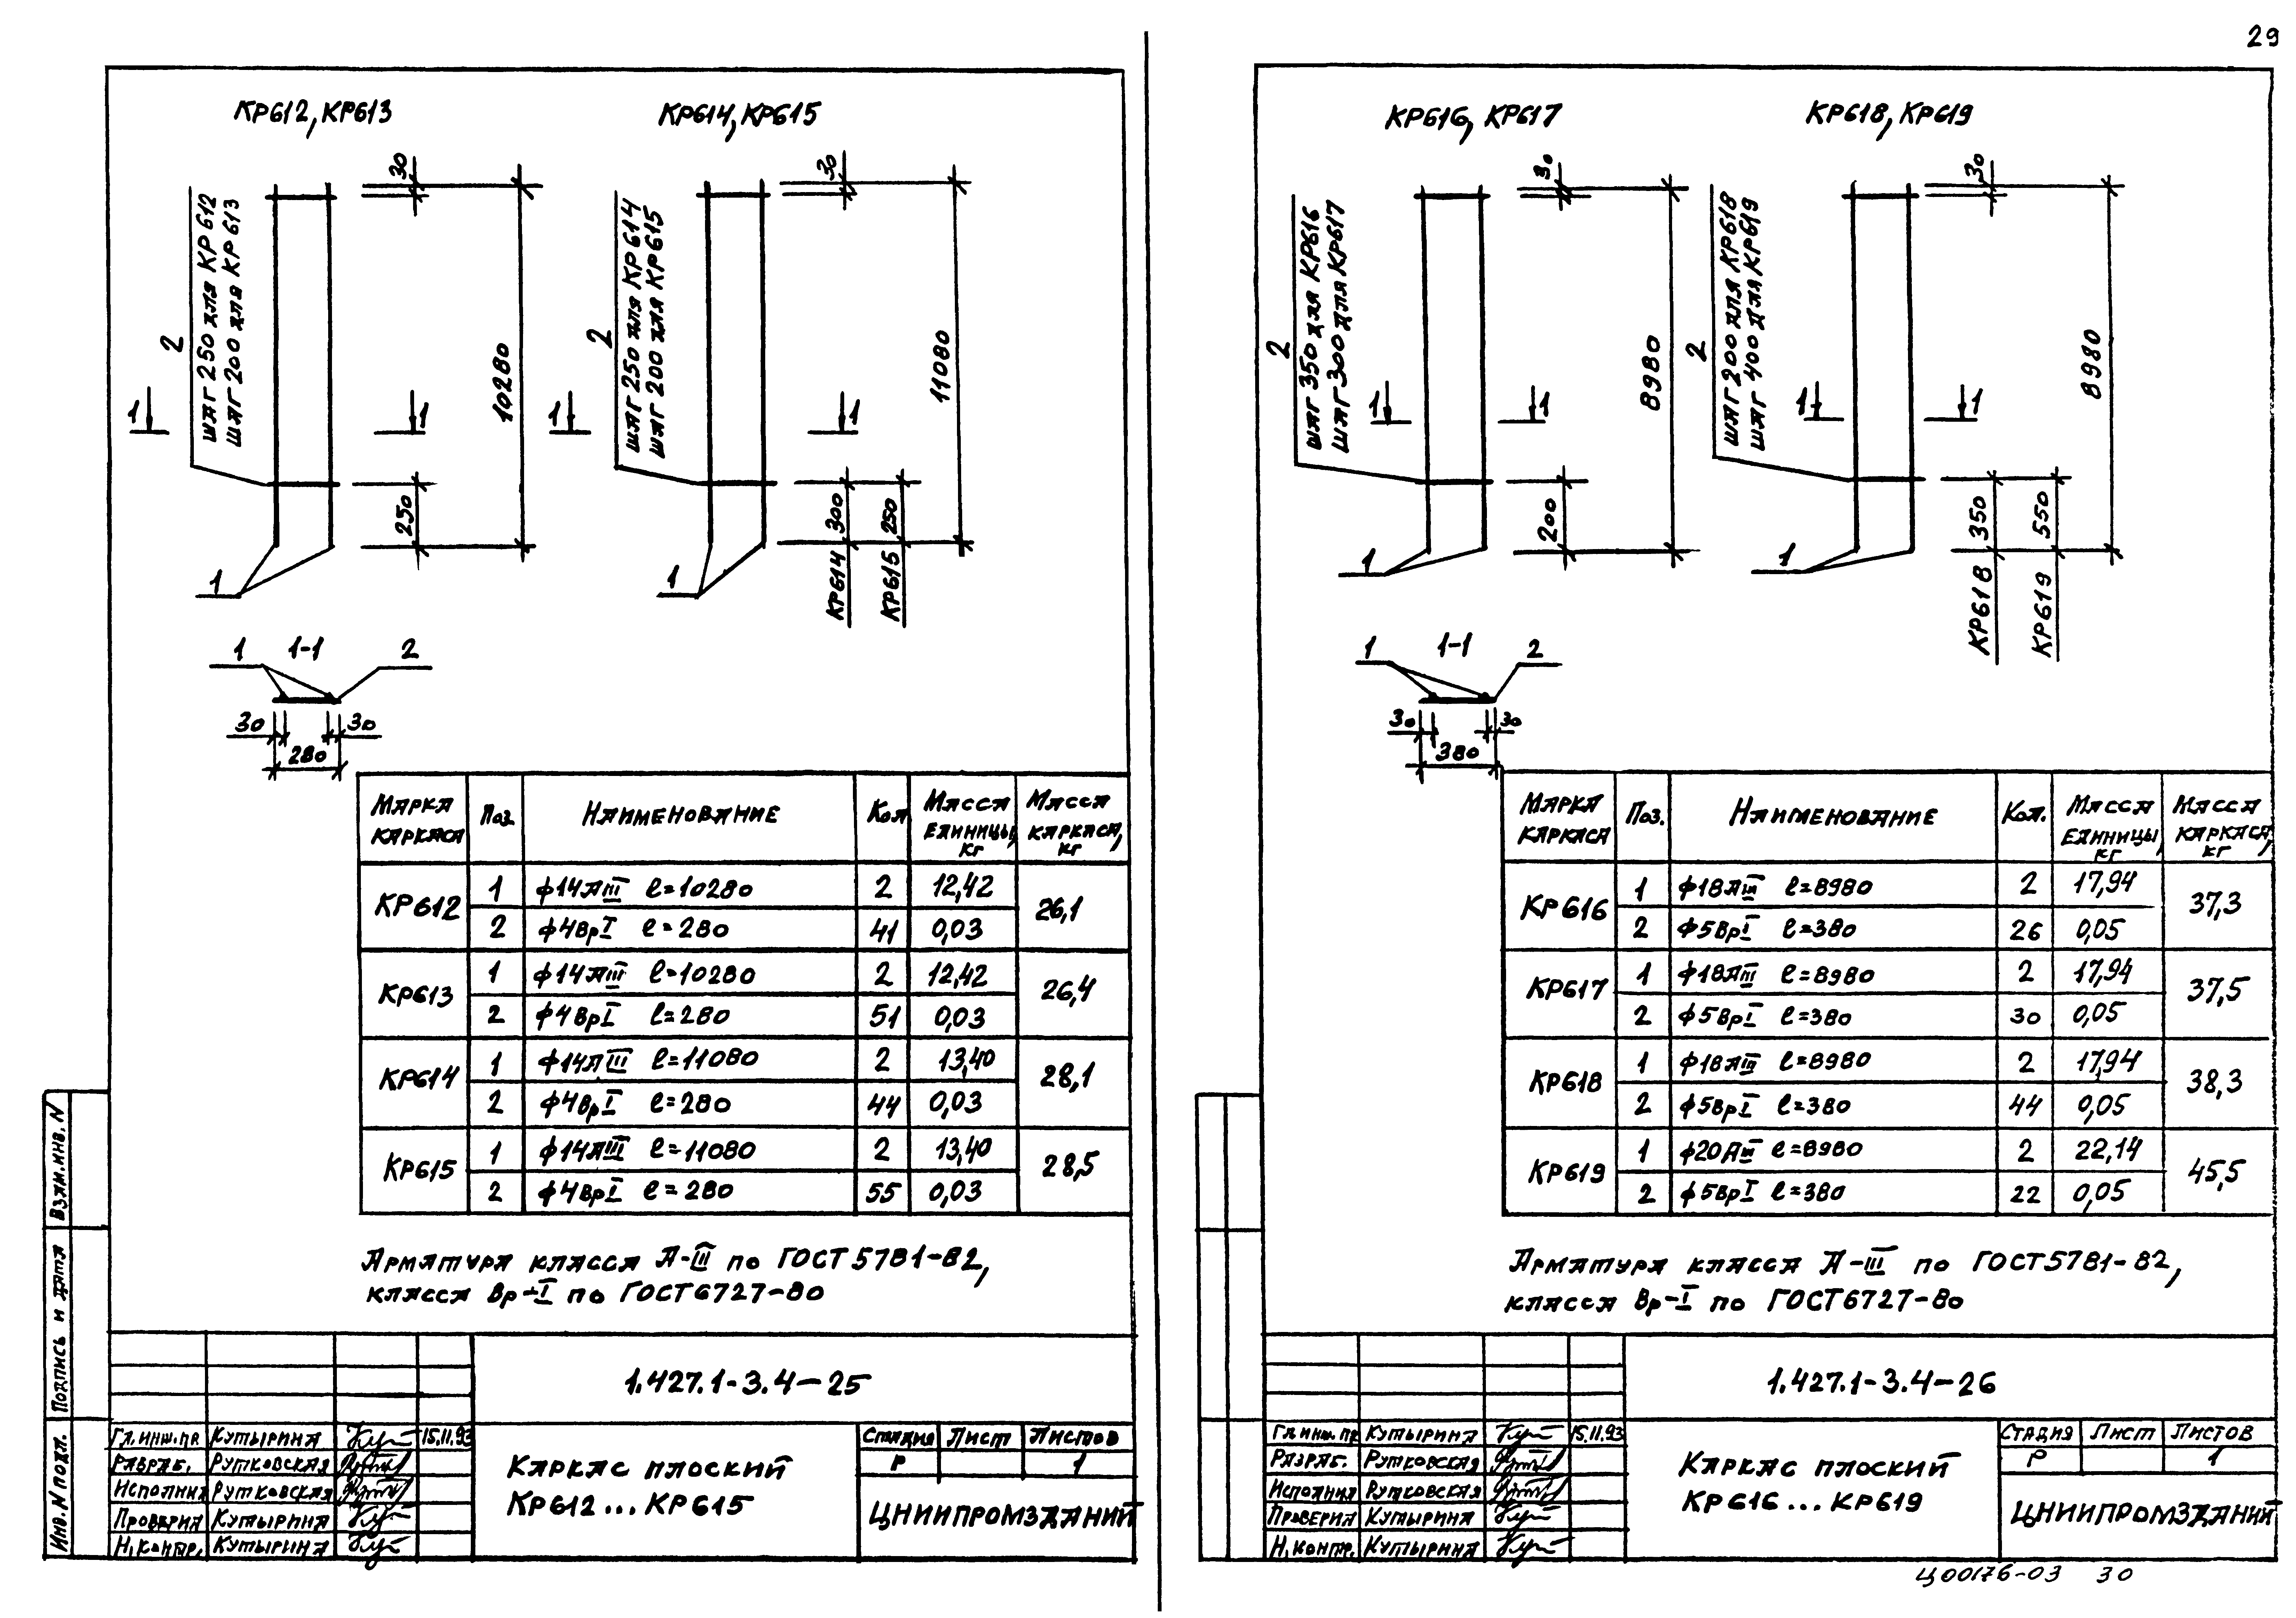 29
КР612, КР613
КР614, КР615
2
шаг 250 для КР612
шаг 200 для КР613
30
10280
250
1
1
1
2
шаг 250 для КР614
шаг 200 для КР615
30
11080
300
250
КР614
КР615
1
1
1
1
1-1
2
30
30
280
Марка каркаса Поз. Наименование Кол Масса единицы, кг Масса каркаса, кг
КР612 1 ф14АIII ℓ=10280 2 12,42 26,1
2 ф4ВрI ℓ=280 41 0,03
КР613 1 ф14АIII ℓ=10280 2 12,42 26,4
2 ф4ВрI ℓ=280 51 0,03
КР614 1 ф14АIII ℓ=11080 2 13,40 28,1
2 ф4ВрI ℓ=280 44 0,03
КР615 1 ф14АIII ℓ=11080 2 13,40 28,5
2 ф4ВрI ℓ=280 55 0,03
Арматура класса А-III по ГОСТ 5781-82,
класса Вр-I по ГОСТ 6727-80
1.427.1-3.4-25
Гл.инж.пр Кутырина 15.11.93
Разраб. Рутковская
Исполнил Рутковская
Проверил Кутырина
Н.контр. Кутырина
Каркас плоский
КР612...КР615
Стадия Лист Листов
Р 1
ЦНИИПРОМЗДАНИЙ
Взам.инв.N
Подпись и дата
Инв.N подл.
КР616, КР617
КР618, КР619
2
шаг 350 для КР616
шаг 300 для КР617
30
8980
200
1
1
1
2
шаг 200 для КР618
шаг 400 для КР619
30
8980
350
550
КР618
КР619
1
1
1
1
1-1
2
30
30
380
Марка каркаса Поз. Наименование Кол. Масса единицы, кг Масса каркаса, кг
КР616 1 ф18АIII ℓ=8980 2 17,94 37,3
2 ф5ВрI ℓ=380 26 0,05
КР617 1 ф18АIII ℓ=8980 2 17,94 37,5
2 ф5ВрI ℓ=380 30 0,05
КР618 1 ф18АIII ℓ=8980 2 17,94 38,3
2 ф5ВрI ℓ=380 44 0,05
КР619 1 ф20АIII ℓ=8980 2 22,14 45,5
2 ф5ВрI ℓ=380 22 0,05
Арматура класса А-III по ГОСТ 5781-82,
класса Вр-I по ГОСТ 6727-80
1.427.1-3.4-26
Гл.инж.пр Кутырина 15.11.93
Разраб. Рутковская
Исполнил Рутковская
Проверил Кутырина
Н.контр. Кутырина
Каркас плоский
КР616...КР619
Стадия Лист Листов
Р 1
ЦНИИПРОМЗДАНИЙ
Ц00176-03 30